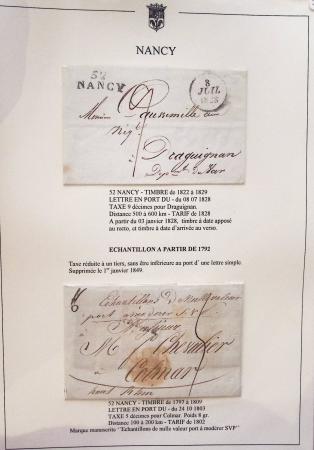 NANCY
52
NANCY
8
JUIL
1828
Monsieur
Négt
à Draguignan
Dépt du Var
52 NANCY - TIMBRE de 1822 à 1829
LETTRE EN PORT DU - du 08 07 1828
TAXE 9 décimes pour Draguignan.
Distance 500 à 600 km - TARIF de 1828
A partir du 03 janvier 1828, timbre à date apposé
au recto, et timbre à date d'arrivée au verso.
ECHANTILLON A PARTIR DE 1792
Taxe réduite à un tiers, sans être inférieure au port d' une lettre simple.
Supprimée le 1er janvier 1849.
Echantillons de nulle valeur
port à modérer S.V.P.
Monsieur
M. Chevalier
à Colmar
haut Rhin
52 NANCY - TIMBRE de 1797 à 1809
LETTRE EN PORT DU - du 24 10 1803
TAXE 5 décimes pour Colmar. Poids 8 gr.
Distance 100 à 200 km - TARIF de 1802
Marque manuscrite "Echantillons de mille valeur port à modérer SVP"